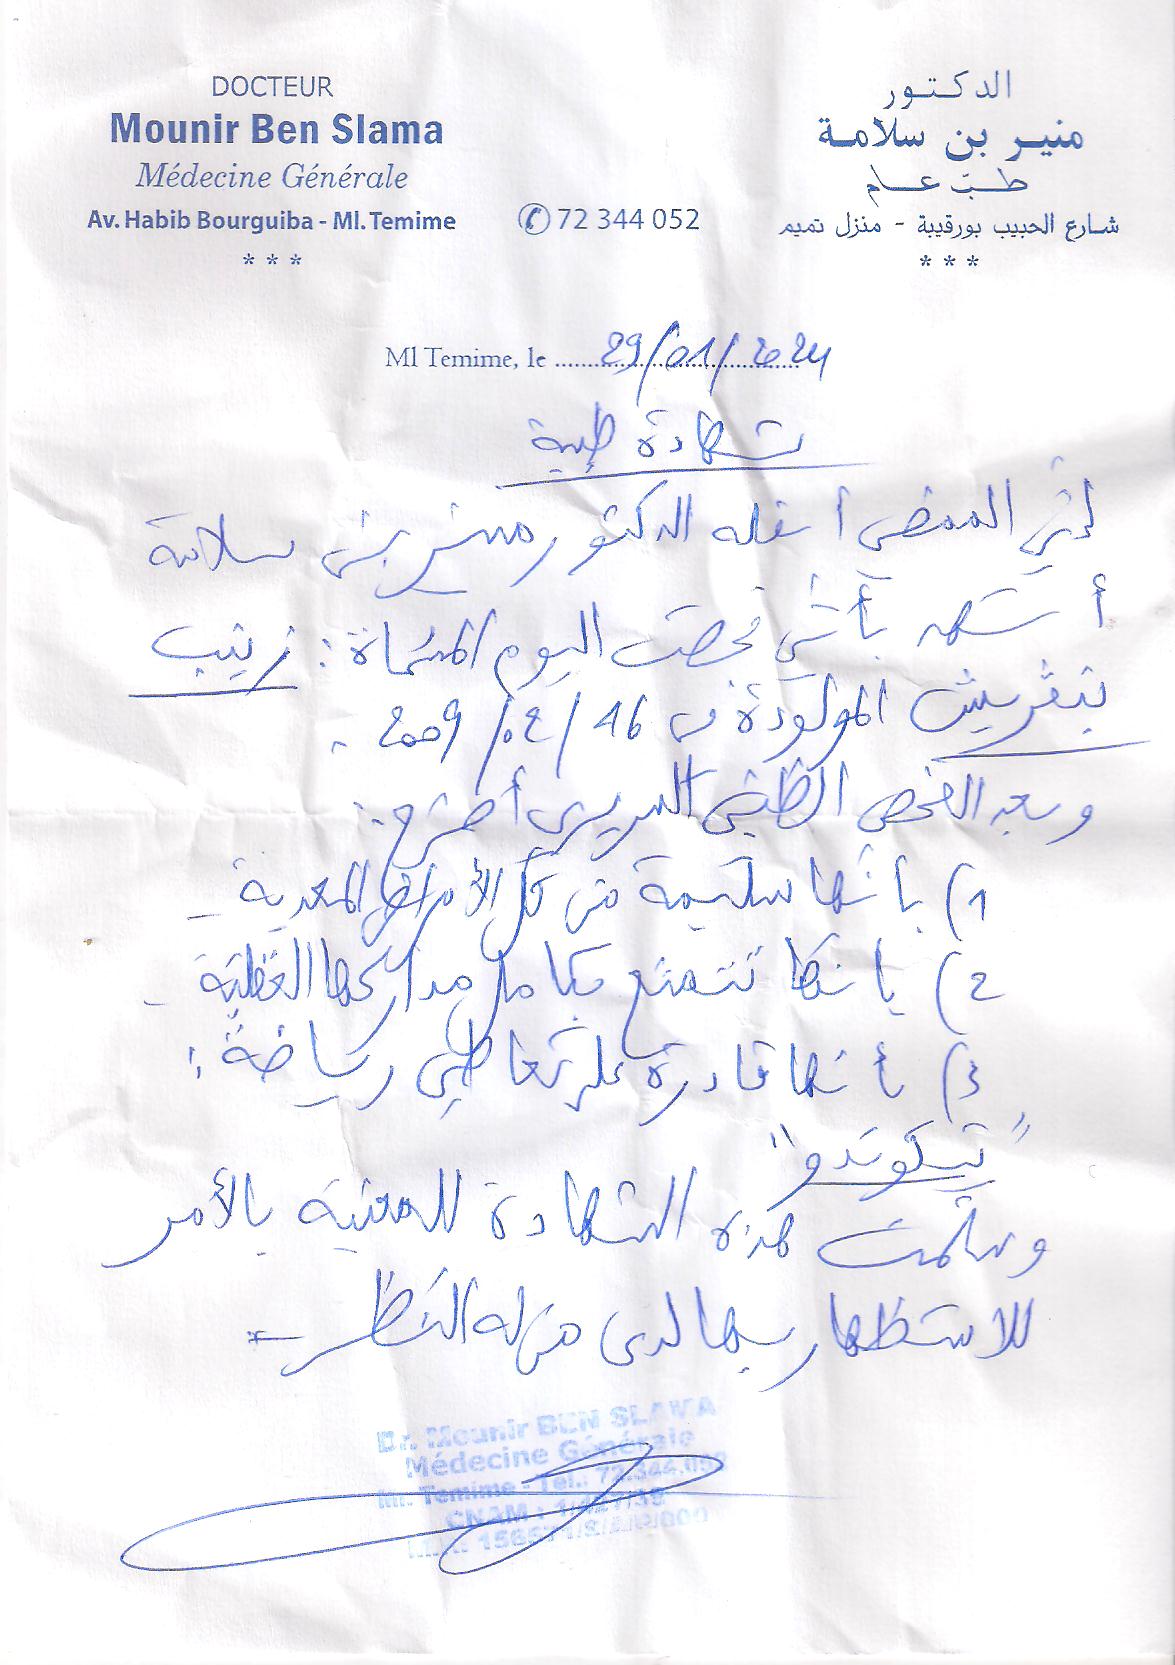 DOCTEUR
Mounir Ben Slama
Médecine Générale
Av. Habib Bourguiba - Ml. Temime
* * *
72 344 052
الدكتور
منير بن سلامة
طبّ عام
شارع الحبيب بورقيبة - منزل تميم
* * *
Ml Temime, le 29/01/2024
شهادة طبية
إنّي الممضي أسفله الدكتور منير بن سلامة
أشهد بأنّي فحصت اليوم المسمّاة: زينب
بنقريش المولودة في 16/04/2009.
وبعد الفحص الطبّي السريري أصرّح:
1) بأنّها سليمة من كلّ الأمراض المعدية -
2) بأنها تتمتّع بكامل مداركها العقليّة -
3) بأنها قادرة على تعاطي رياضة:
"تيكوندو"
وسلّمت هذه الشهادة للمعنية بالأمر
للاستظهار بها لدى من له النّظر -
Dr. Mounir BEN SLAMA
Médecine Générale
Ml. Temime - Tel.: 72.344.052
CNAM : 1/